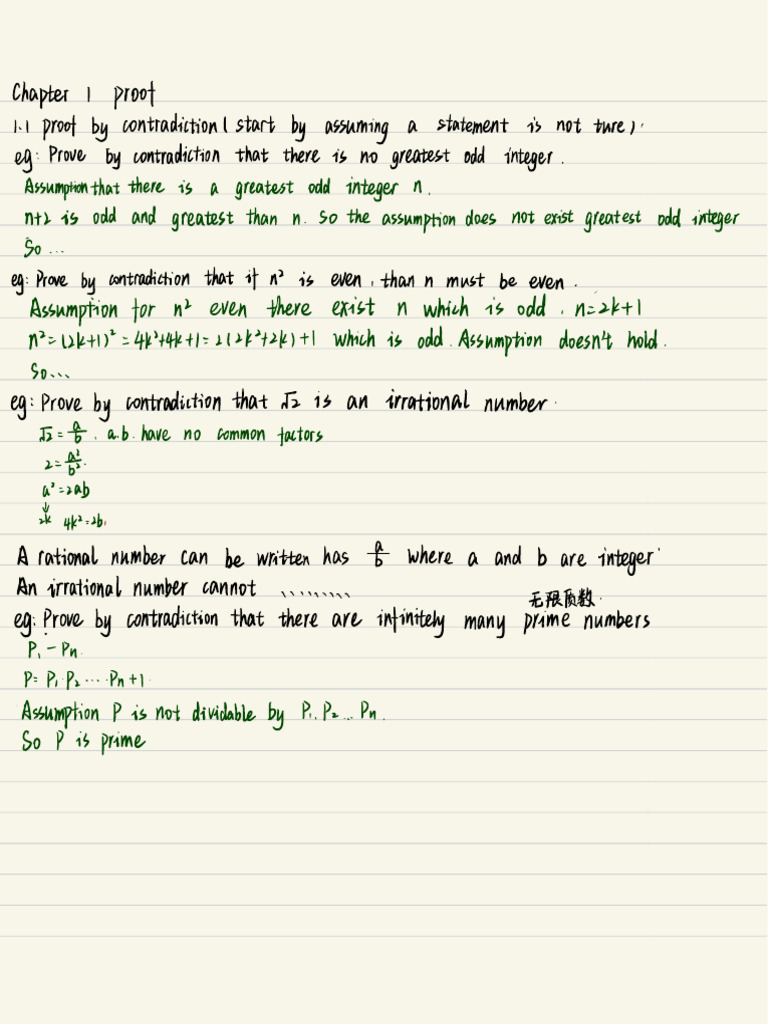 Chapter 1 proof
1.1 proof by contradiction ( start by assuming a statement is not ture ).
eg: Prove by contradiction that there is no greatest odd integer.
Assumption that there is a greatest odd integer n.
n+2 is odd and greatest than n. so the assumption does not exist greatest odd integer
So ...
eg: Prove by contradiction that if n² is even, than n must be even.
Assumption for n² even there exist n which is odd, n=2k+1
n²=(2k+1)²=4k²+4k+1=2(2k²+2k)+1 which is odd. Assumption doesn't hold.
So...
eg: Prove by contradiction that √2 is an irrational number.
√2=a/b, a.b. have no common factors
2=a²/b².
a²=2ab
↓
2k 4k²=2b.
A rational number can be written has a/b where a and b are integer.
An irrational number cannot 、、、、、、、、、
无限质数.
eg: Prove by contradiction that there are infinitely many prime numbers
P₁ - Pn.
P= P₁ P₂ ... Pn+1.
Assumption P is not dividable by P₁. P₂ ... Pn.
So P is prime